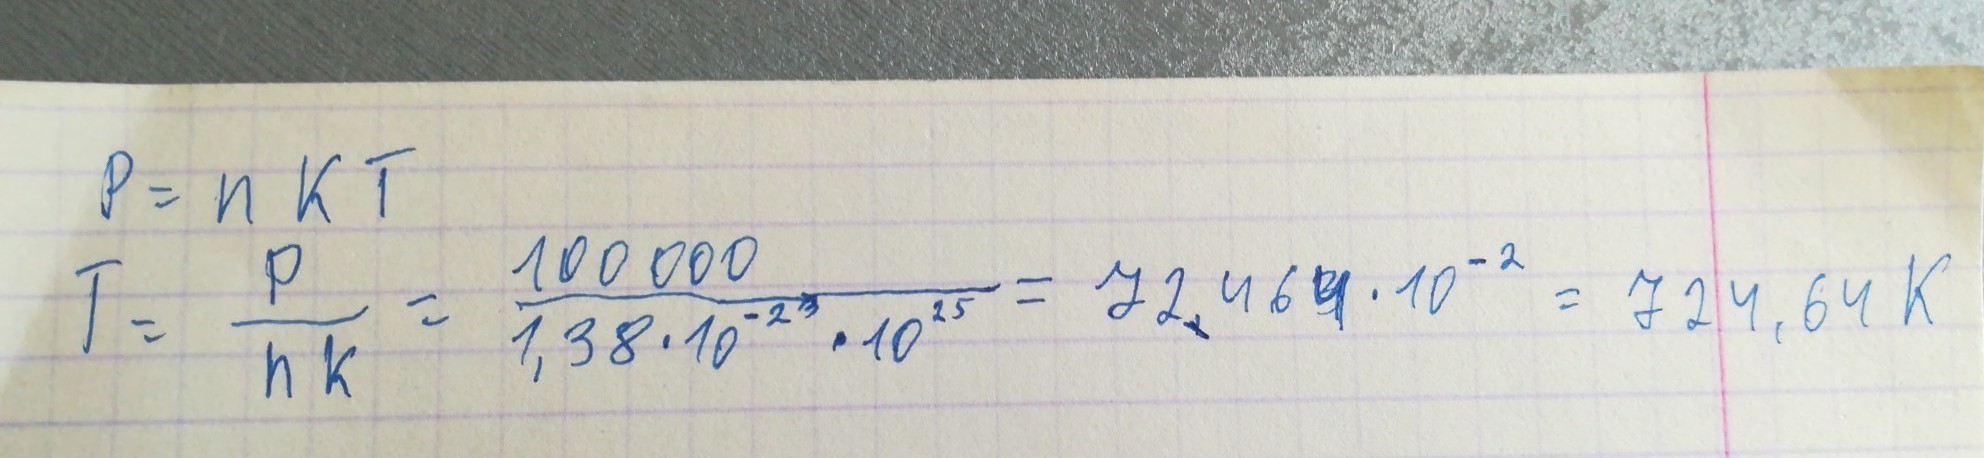 P = n K T
T = P / n k = 100 000 / 1,38 · 10^-23 · 10^25 = 72,464 · 10^-2 = 724,64 K